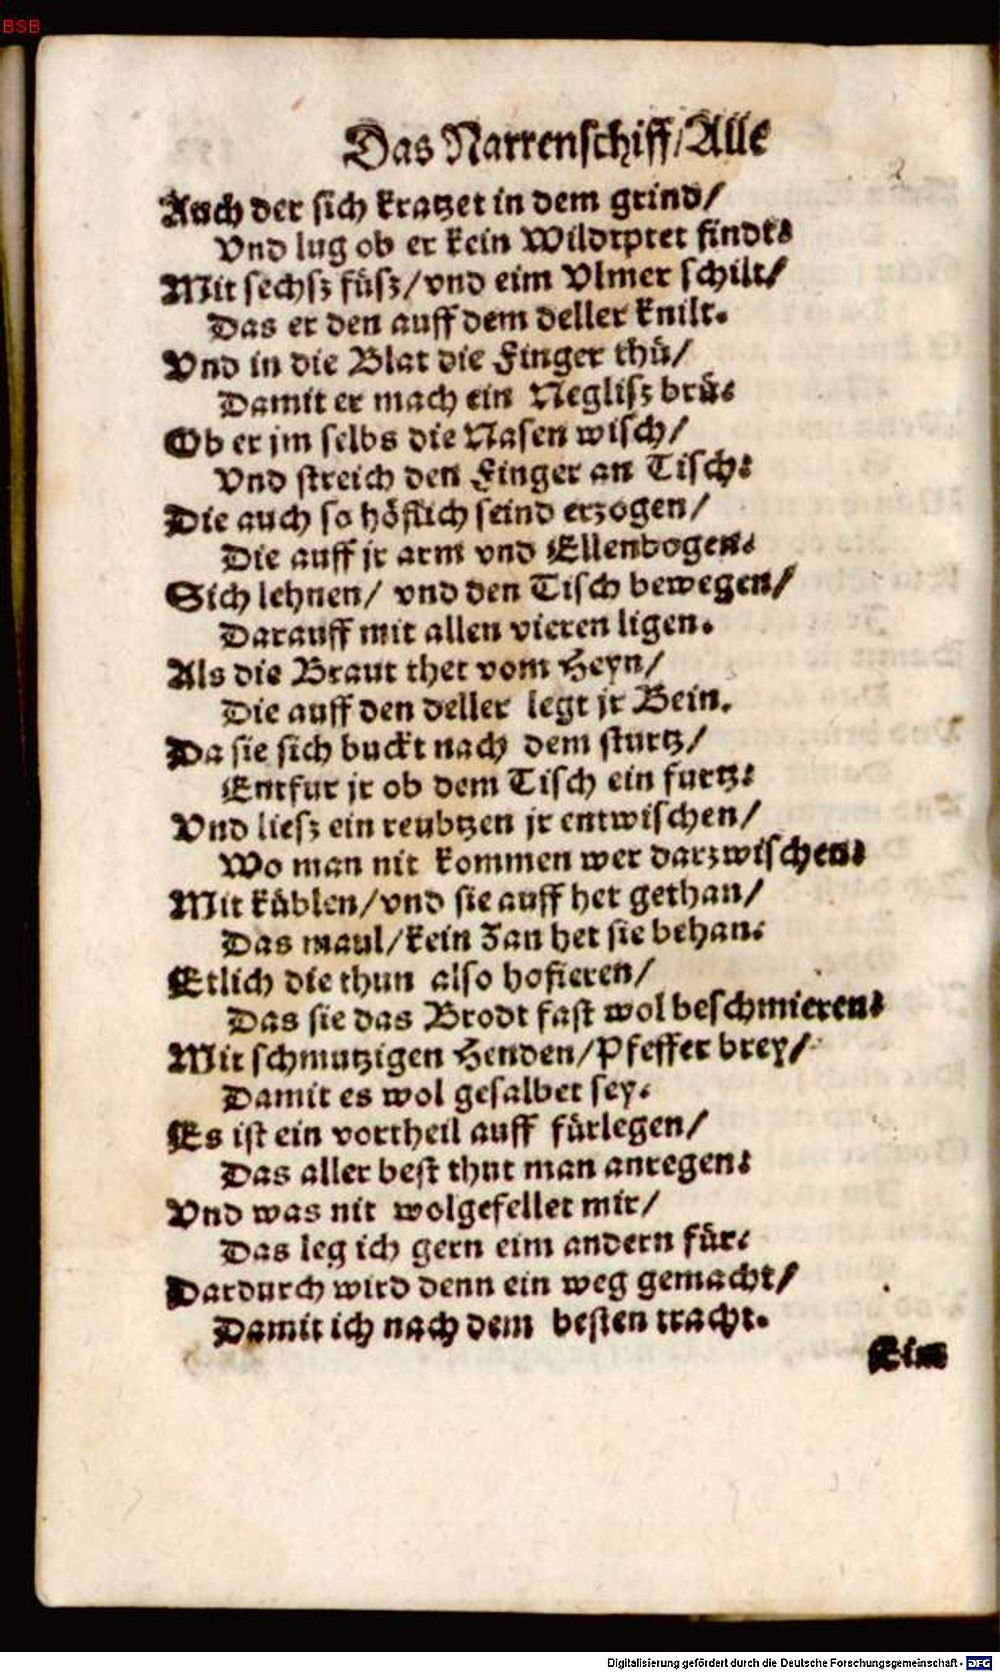 BSB
Das Narrenschiff/Alle
Auch der sich kratzet in dem grind/
Vnd lug ob er kein Wildtpret findt:
Mit sechsz füsz/vnd eim Vlmer schilt/
Das er den auff dem deller knilt.
Vnd in die Blat die Finger thü/
Damit er mach ein Neglisz brü:
Ob er jm selbs die Nasen wisch/
Vnd streich den Finger an Tisch:
Die auch so höflich seind erzogen/
Die auff jr arm vnd Ellenbogen:
Sich lehnen/ vnd den Tisch bewegen/
Darauff mit allen vieren ligen.
Als die Braut thet vom Heyn/
Die auff den deller legt jr Bein.
Da sie sich buckt nach dem sturtz/
Entfur jr ob dem Tisch ein furtz:
Vnd liesz ein reubtzen jr entwischen/
Wo man nit kommen wer darzwischen:
Mit küblen/vnd sie auff het gethan/
Das maul/kein Zan het sie behan:
Etlich die thun also hofieren/
Das sie das Brodt fast wol beschmieren:
Mit schmutzigen Henden/Pfeffer brey/
Damit es wol gesalbet sey.
Es ist ein vortheil auff fürlegen/
Das aller best thut man anregen:
Vnd was nit wolgefellet mir/
Das leg ich gern eim andern für:
Dardurch wird denn ein weg gemacht/
Damit ich nach dem besten tracht.
Ein
Digitalisierung gefördert durch die Deutsche Forschungsgemeinschaft - DFG